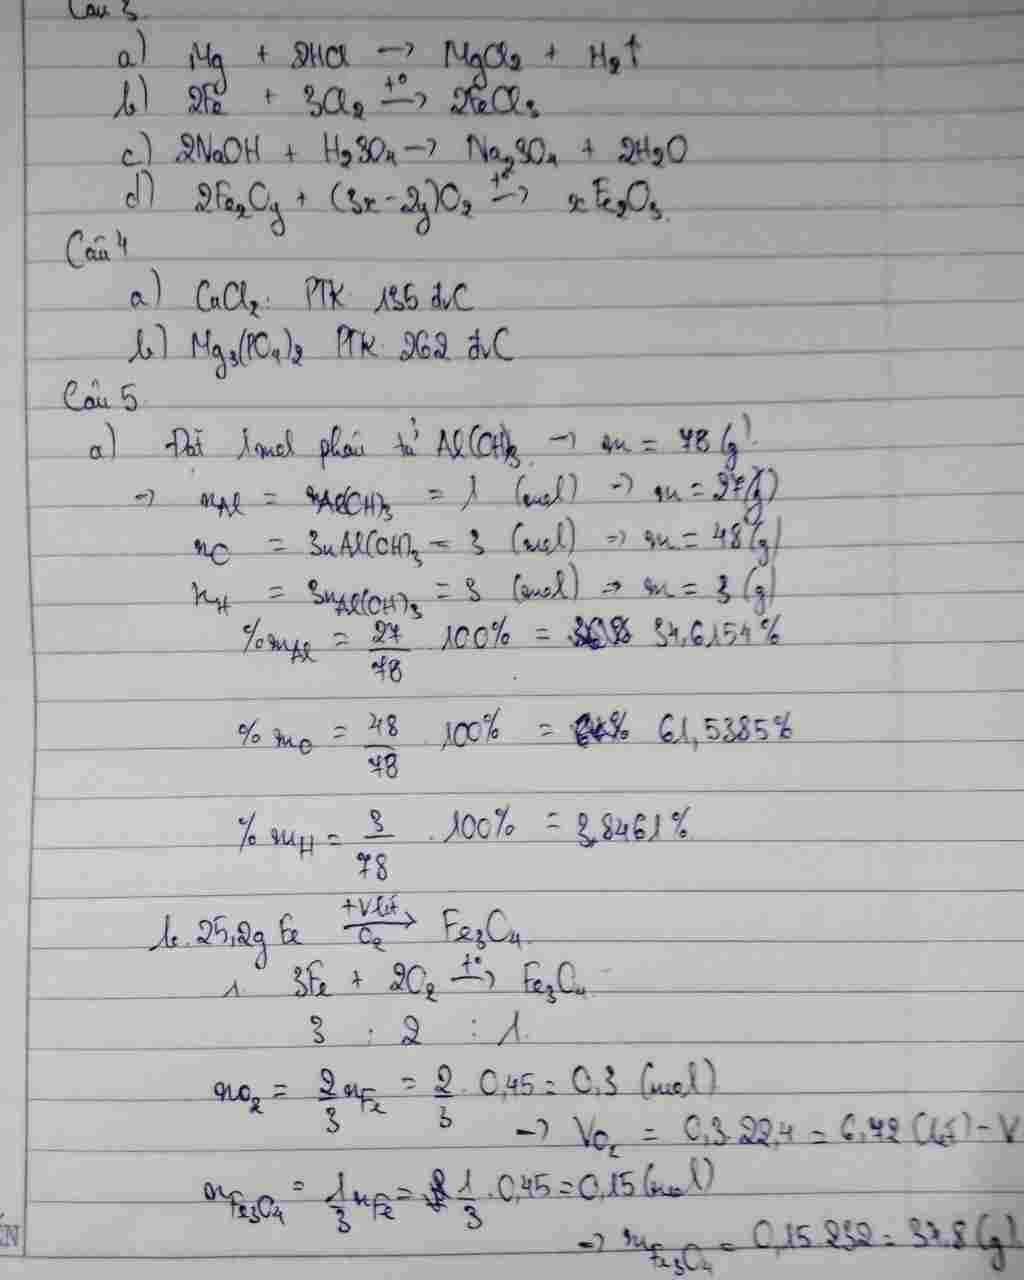 Câu 3
a) Mg + 2HCl → MgCl₂ + H₂↑
b) 2Fe + 3Cl₂ –t°→ 2FeCl₃
c) 2NaOH + H₂SO₄ → Na₂SO₄ + 2H₂O
d) 2FeₓOy + (3x - 2y)O₂ –t°→ xFe₂O₃
Câu 4
a) CuCl₂: PTK 135 đvC
b) Mg₃(PO₄)₂ PTK 262 đvC
Câu 5
a) Đặt 1 mol phân tử Al(OH)₃ → m = 78 (g)
→ nAl = nAl(OH)₃ = 1 (mol) → m = 27(g)
nO = 3nAl(OH)₃ = 3 (mol) → m = 48(g)
nH = 3nAl(OH)₃ = 3 (mol) → m = 3 (g)
%mAl = 27/78 100% = 34,6154%
%mO = 48/78 100% = 61,5385%
%mH = 3/78 . 100% = 3,8461%
b. 25,2g Fe –+V lít O₂→ Fe₃O₄
3Fe + 2O₂ –t°→ Fe₃O₄
3 : 2 : 1
nO₂ = 2/3 nFe = 2/3 . 0,45 = 0,3 (mol)
→ VO₂ = 0,3.22,4 = 6,72 (lít) = V
nFe₃O₄ = 1/3 nFe = 1/3 . 0,45 = 0,15 (mol)
→ mFe₃O₄ = 0,15.232 = 37,8 (g)